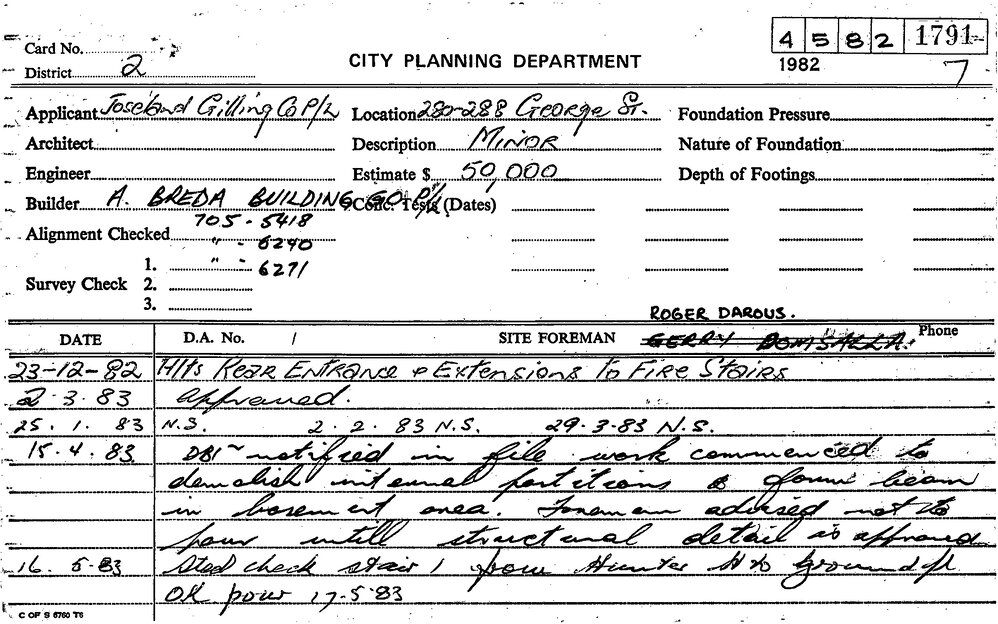 Card No.
4 5 8 2 1791
District 2
CITY PLANNING DEPARTMENT
1982
7
Applicant Joseland Gilling Co P/L Location 280-288 George St. Foundation Pressure
Architect Description MINOR Nature of Foundation
Engineer Estimate $ 50,000 Depth of Footings
Builder A. BREDA BUILDING CO P/L Conc. Tests (Dates)
705-5418
Alignment Checked " - 6240
1. " - 6271
Survey Check 2.
3.
ROGER DAROUS.
DATE D.A. No. / SITE FOREMAN GERRY Phone
23-12-82 Alts Rear Entrance & Extensions to Fire Stairs
2.3.83 approved.
25.1.83 N.S. 2.2.83 N.S. 29.3.83 N.S.
15.4.83 notified in file work commenced to
demolish internal partitions & form beam
in basement area. Foreman advised not to
pour untill structural detail is approved
16.5.83 Steel check stair 1 from Hunter to Ground
OK pour 17.5.83
C OF S 6760 T6